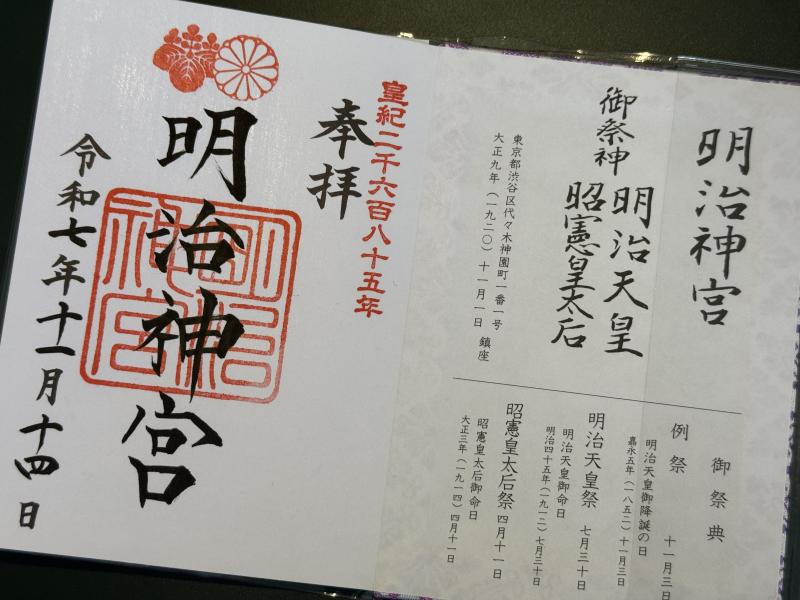 明治神宮
御祭神
明治天皇
昭憲皇太后
東京都渋谷区代々木神園町一番一号
大正九年（一九二〇）十一月一日 鎮座
御祭典
例祭 十一月三日
明治天皇御降誕の日
嘉永五年（一八五二）十一月三日
明治天皇祭 七月三十日
明治天皇御命日
明治四十五年（一九一二）七月三十日
昭憲皇太后祭 四月十一日
昭憲皇太后御命日
大正三年（一九一四）四月十一日
皇紀二千六百八十五年
奉拝
明治神宮
明治神宮
令和七年十一月十四日